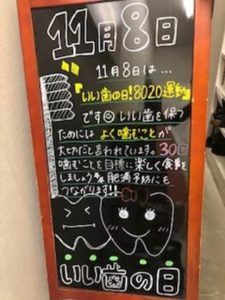 11月8日
11月8日は…
『いい歯の日!8020運動』
です☺いい歯を保つ
ためには よく噛むことが
大切だと言われています。30回
噛むことを目標に楽しく食事を
しましょう 肥満予防にも
つながります!!
いい歯の日